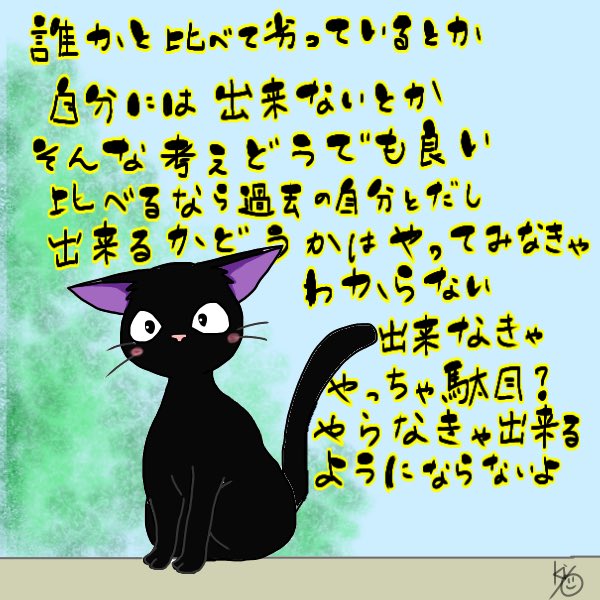 誰かと比べて劣っているとか
自分には出来ないとか
そんな考えどうでも良い
比べるなら過去の自分とだし
出来るかどうかはやってみなきゃ
わからない
出来なきゃ
やっちゃ駄目?
やらなきゃ出来る
ようにならないよ